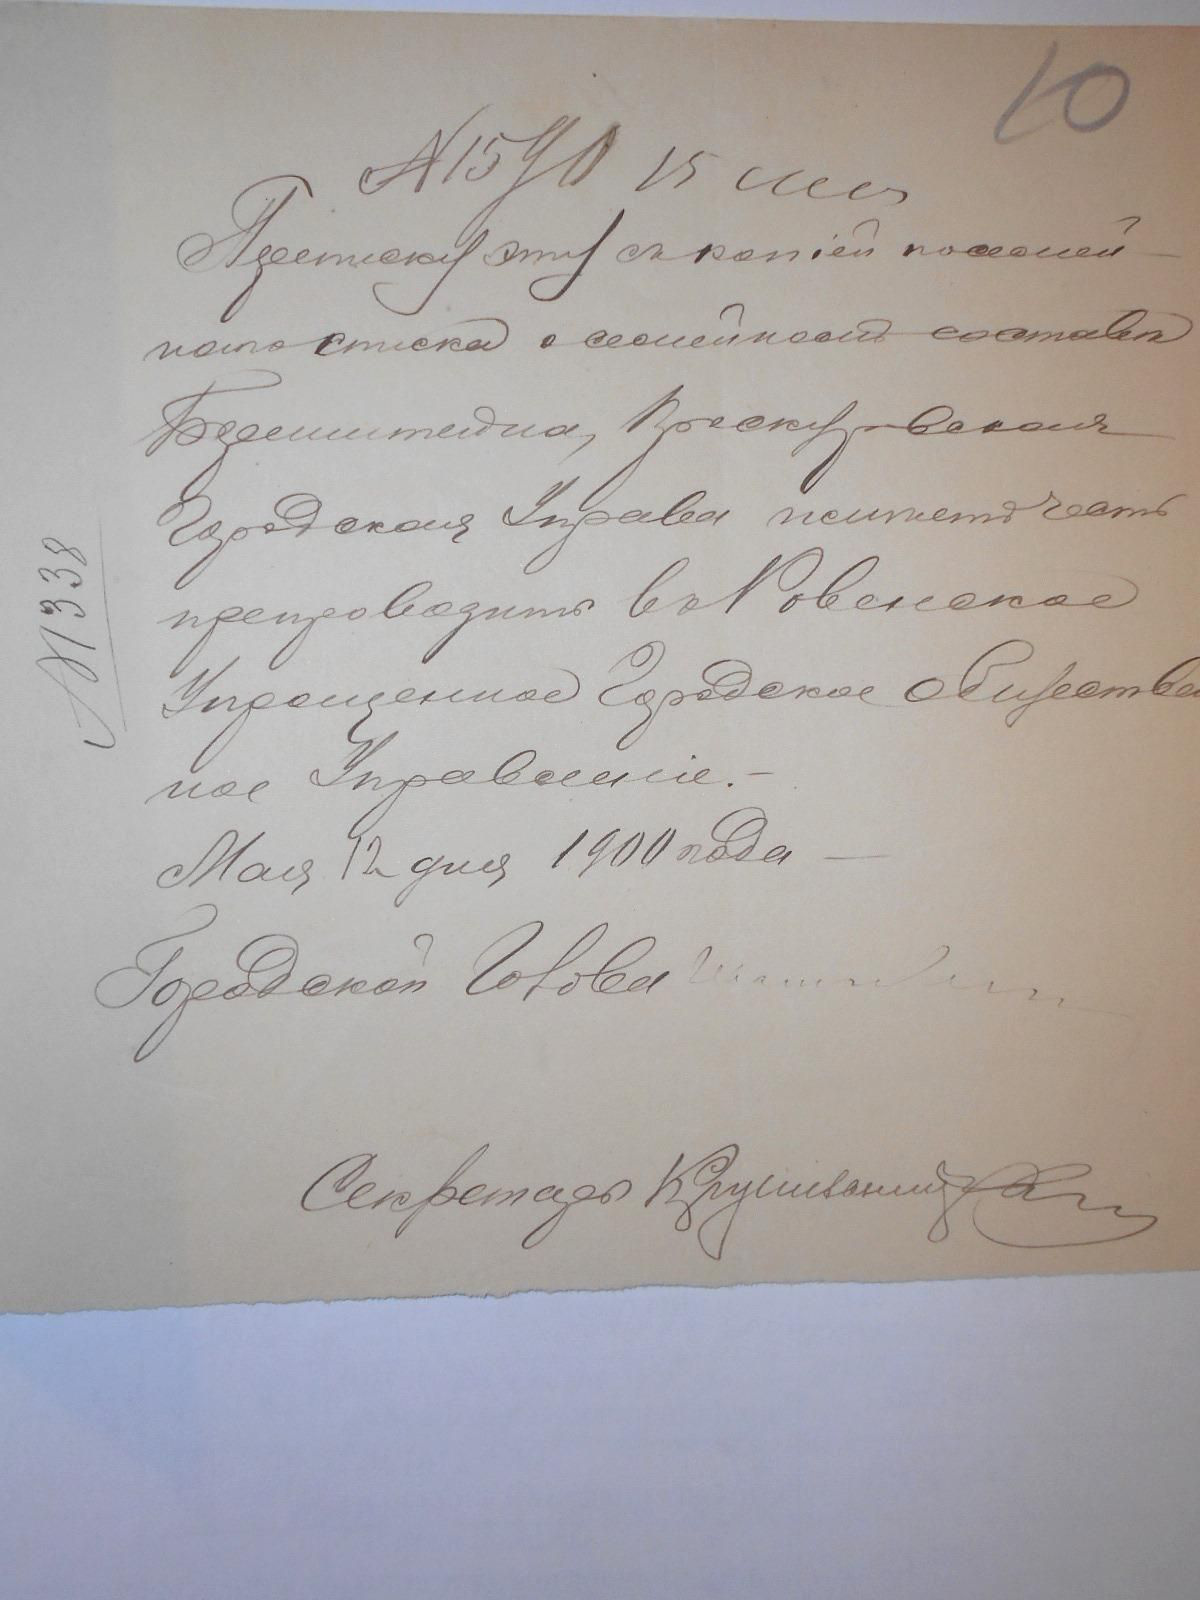 10
15 мая
Переписку эту съ копіей посемей-
наго списка о семейномъ составѣ
Бернштейна, Проскуровская
Городская Управа имѣетъ честь
препроводить въ Ровенское
Упрощенное Городское Обществен
ное Управленіе.-
Мая 12 дня 1900 года —
Городской Голова
Секретарь
№1338